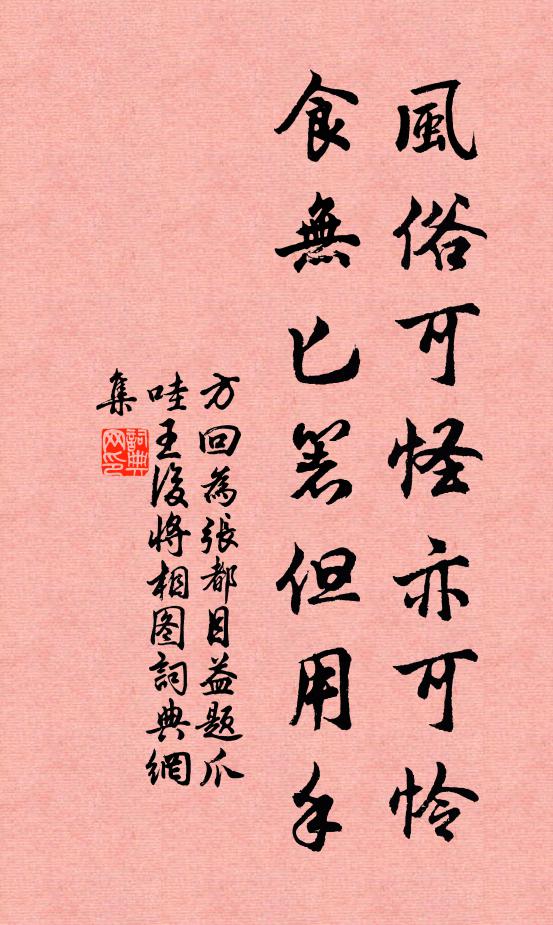 風俗可怪亦可怜
食無匕箸但用手
方回為張都目益题爪
哇王後將相图詞典網
集
詞典
网印